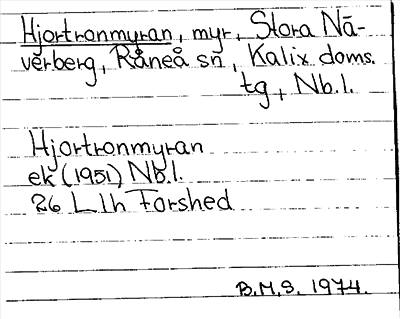 Hjortronmyran, myr, Stora Nä-
verberg, Råneå sn, Kalix doms.
tg, Nb.l.
Hjortronmyran
ek (1951) Nb.l.
26 L lh Forshed
B.M.S. 1974.